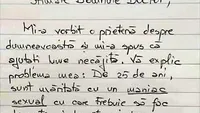 Stimate Domnule Doctor,
Mi-a vorbit o prietenă despre
dumneavoastră și mi-a spus că
ajutați lume necăjită. Vă explic
problema mea: De 25 de ani,
sunt măritată cu un maniac
sexual cu care trebuie să fac